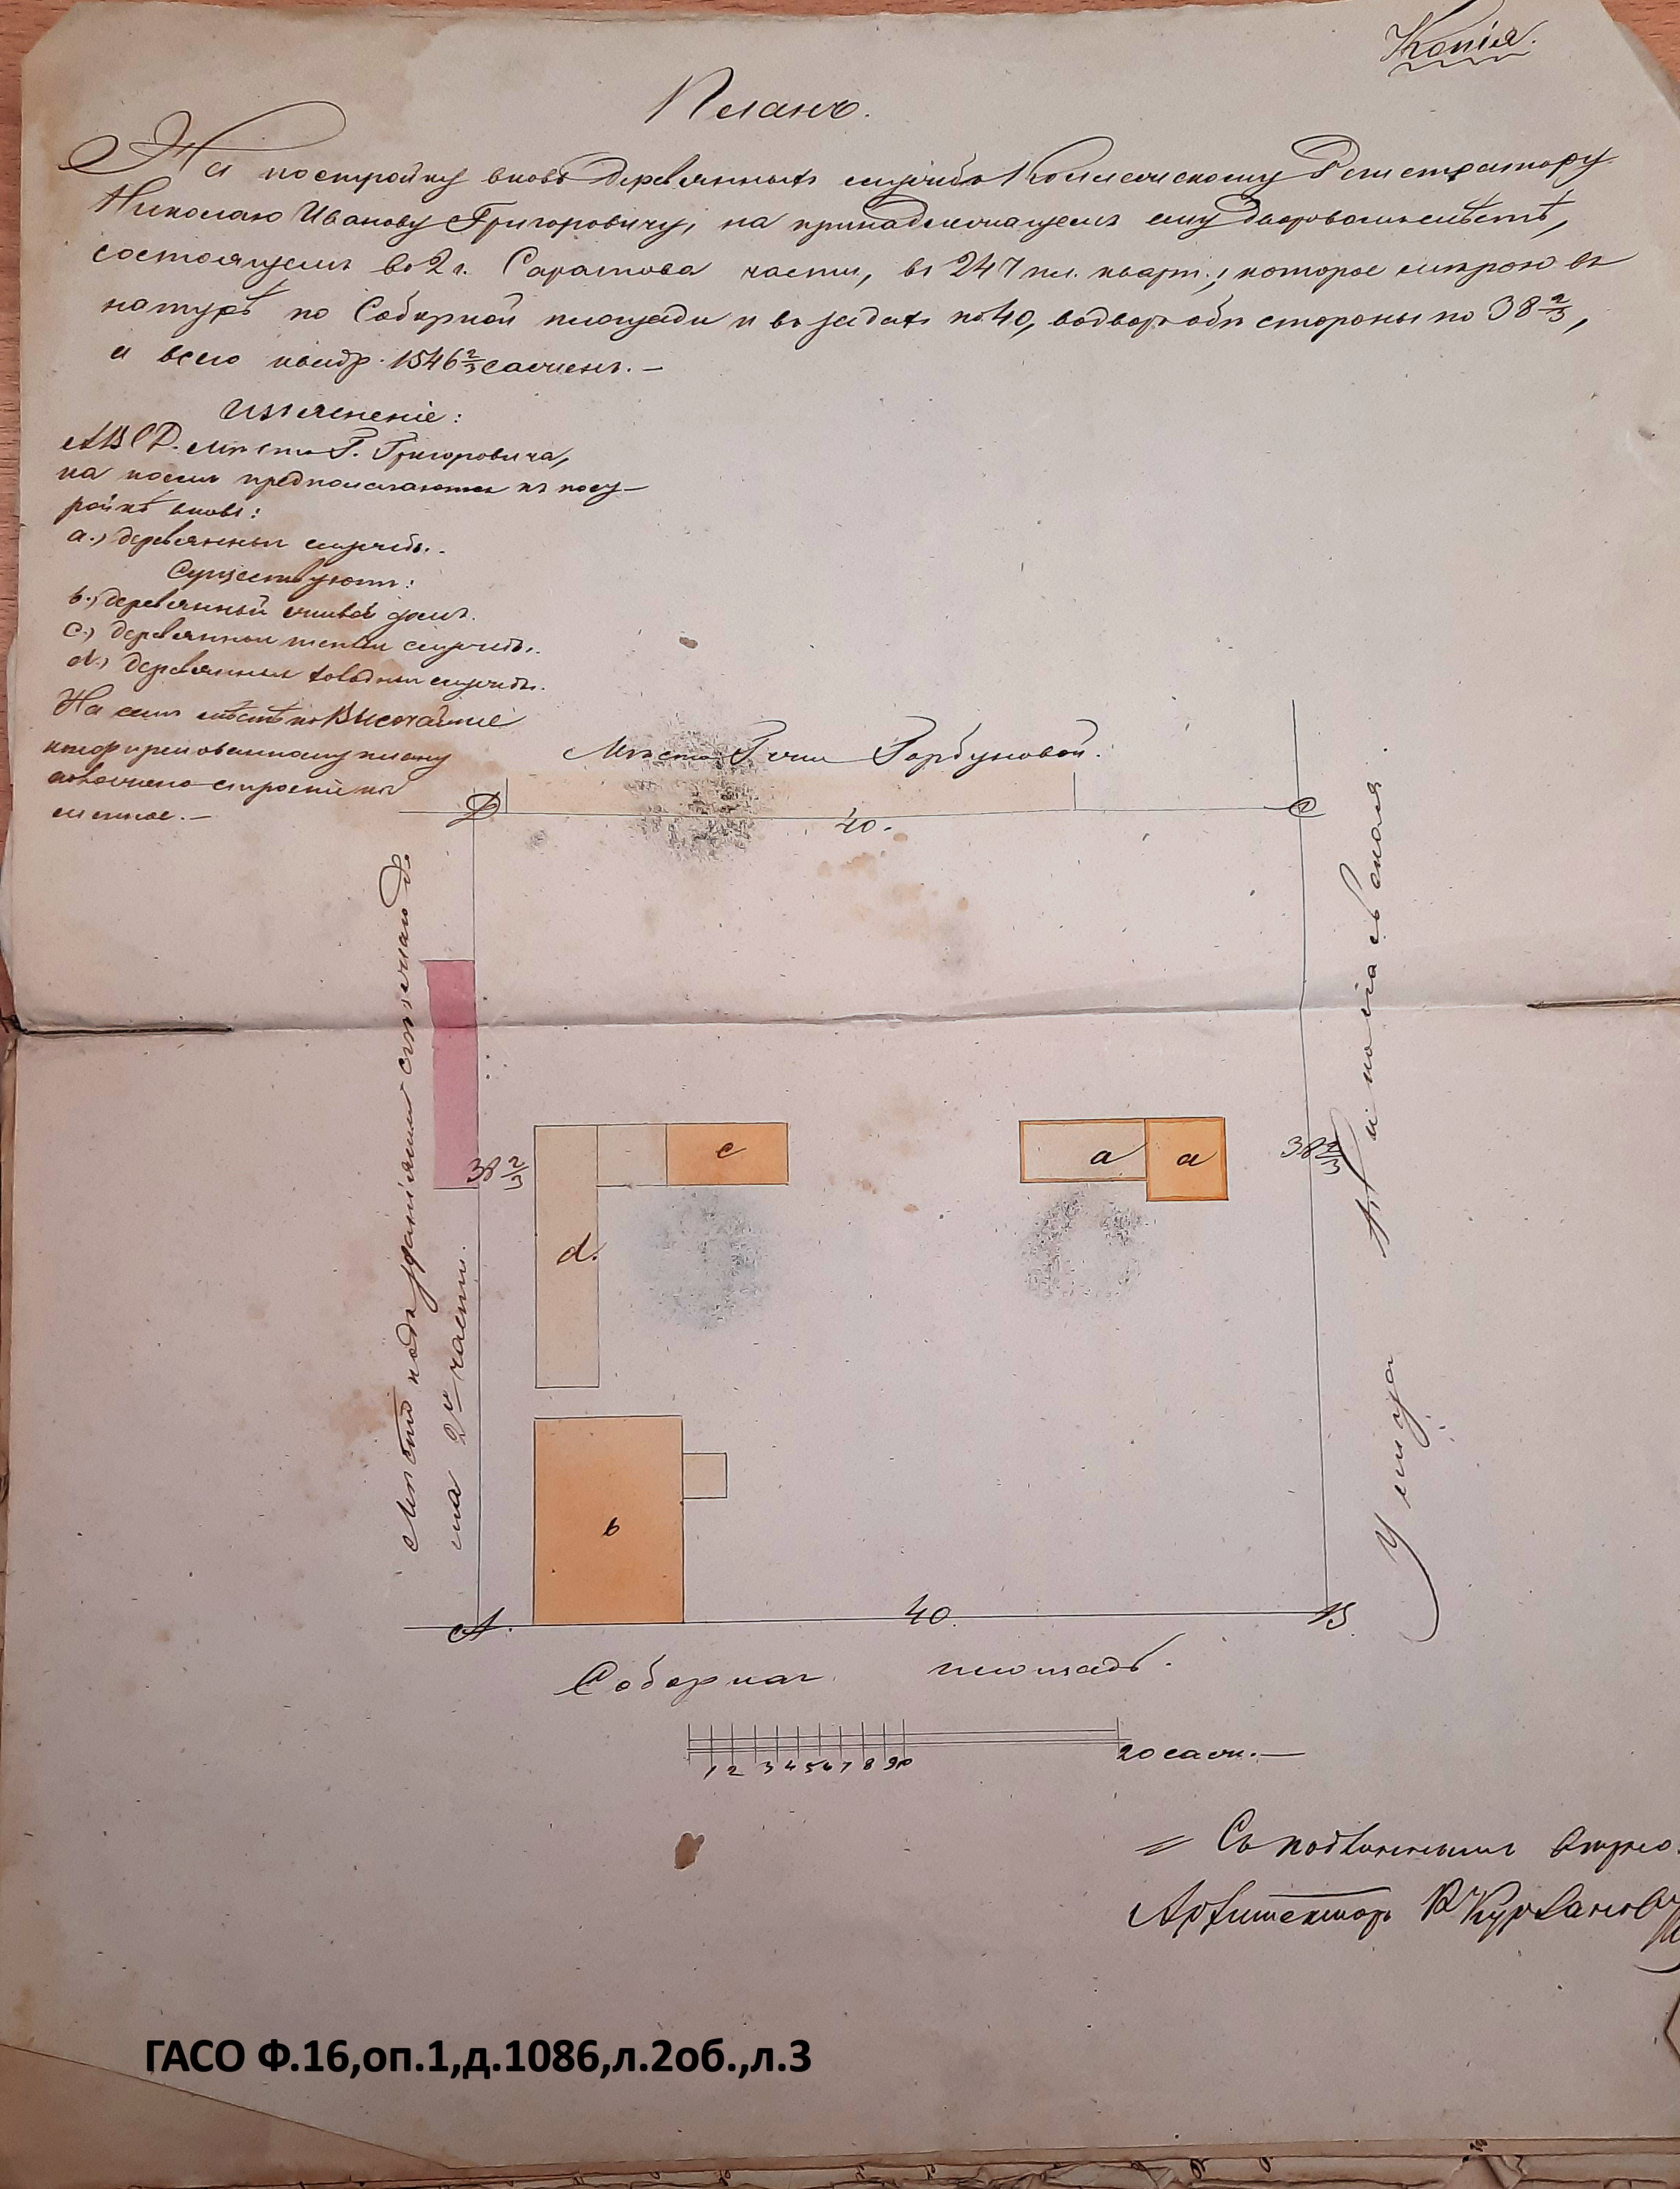 Копія.
Планъ.
На постройку вновь деревянныхъ службъ Коллежскому Регистратору
Николаю Иванову Григоровичу, на принадлежащемъ ему дворовомъ мѣстѣ,
состоящемъ во 2 г. Саратова части, въ 247 пл. кварт., которое мѣрою въ
натурѣ по Соборной площади и въ задахъ по 40, во дворъ обѣ стороны по 38 2/3,
а всего квадр. 1546 2/3 сажень. —
Изъясненіе:
ABCD. мѣсто Г. Григоровича,
на коемъ предполагаются къ пост-
ройкѣ вновь:
a., деревянныя службы.
Существуютъ:
b., деревянный жилой домъ.
c., деревянныя теплыя службы.
d., деревянныя холодныя службы.
На семъ мѣстѣ по Высочайше
конфирмованному плану
назначено строеніе ка
менное. —
Мѣсто Г-жи Горбуновой.
D
C
40.
Мѣсто подъ зданіями съѣзжаго д
ма 2й части.
38 2/3
38 2/3
Улица Аничковская
c
a
a
d.
b
A.
40.
B.
Соборная площадь.
1 2 3 4 5 6 7 8 9 10
20 саж. —
Съ подлиннымъ вѣрно.
Архитекторъ
ГАСО Ф.16,оп.1,д.1086,л.2об.,л.3